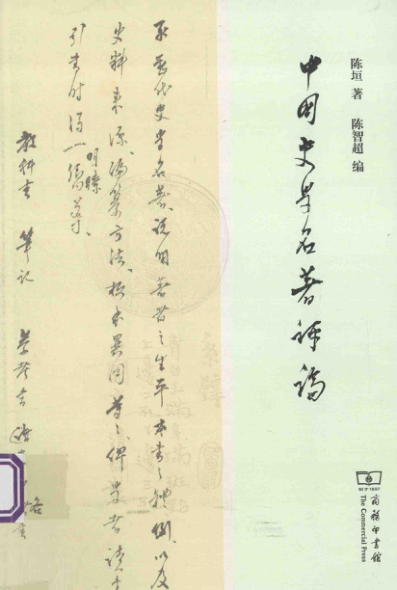 陈垣 著 陈智超 编
中国史学名著评论
取历代史学名著、说明著者之生平本书之体例、以及
史料来源、编纂方法、板本异同等等、俾学者读书
引书时得一
明瞭
教科书 笔记
参考书
商务印书馆
The Commercial Press